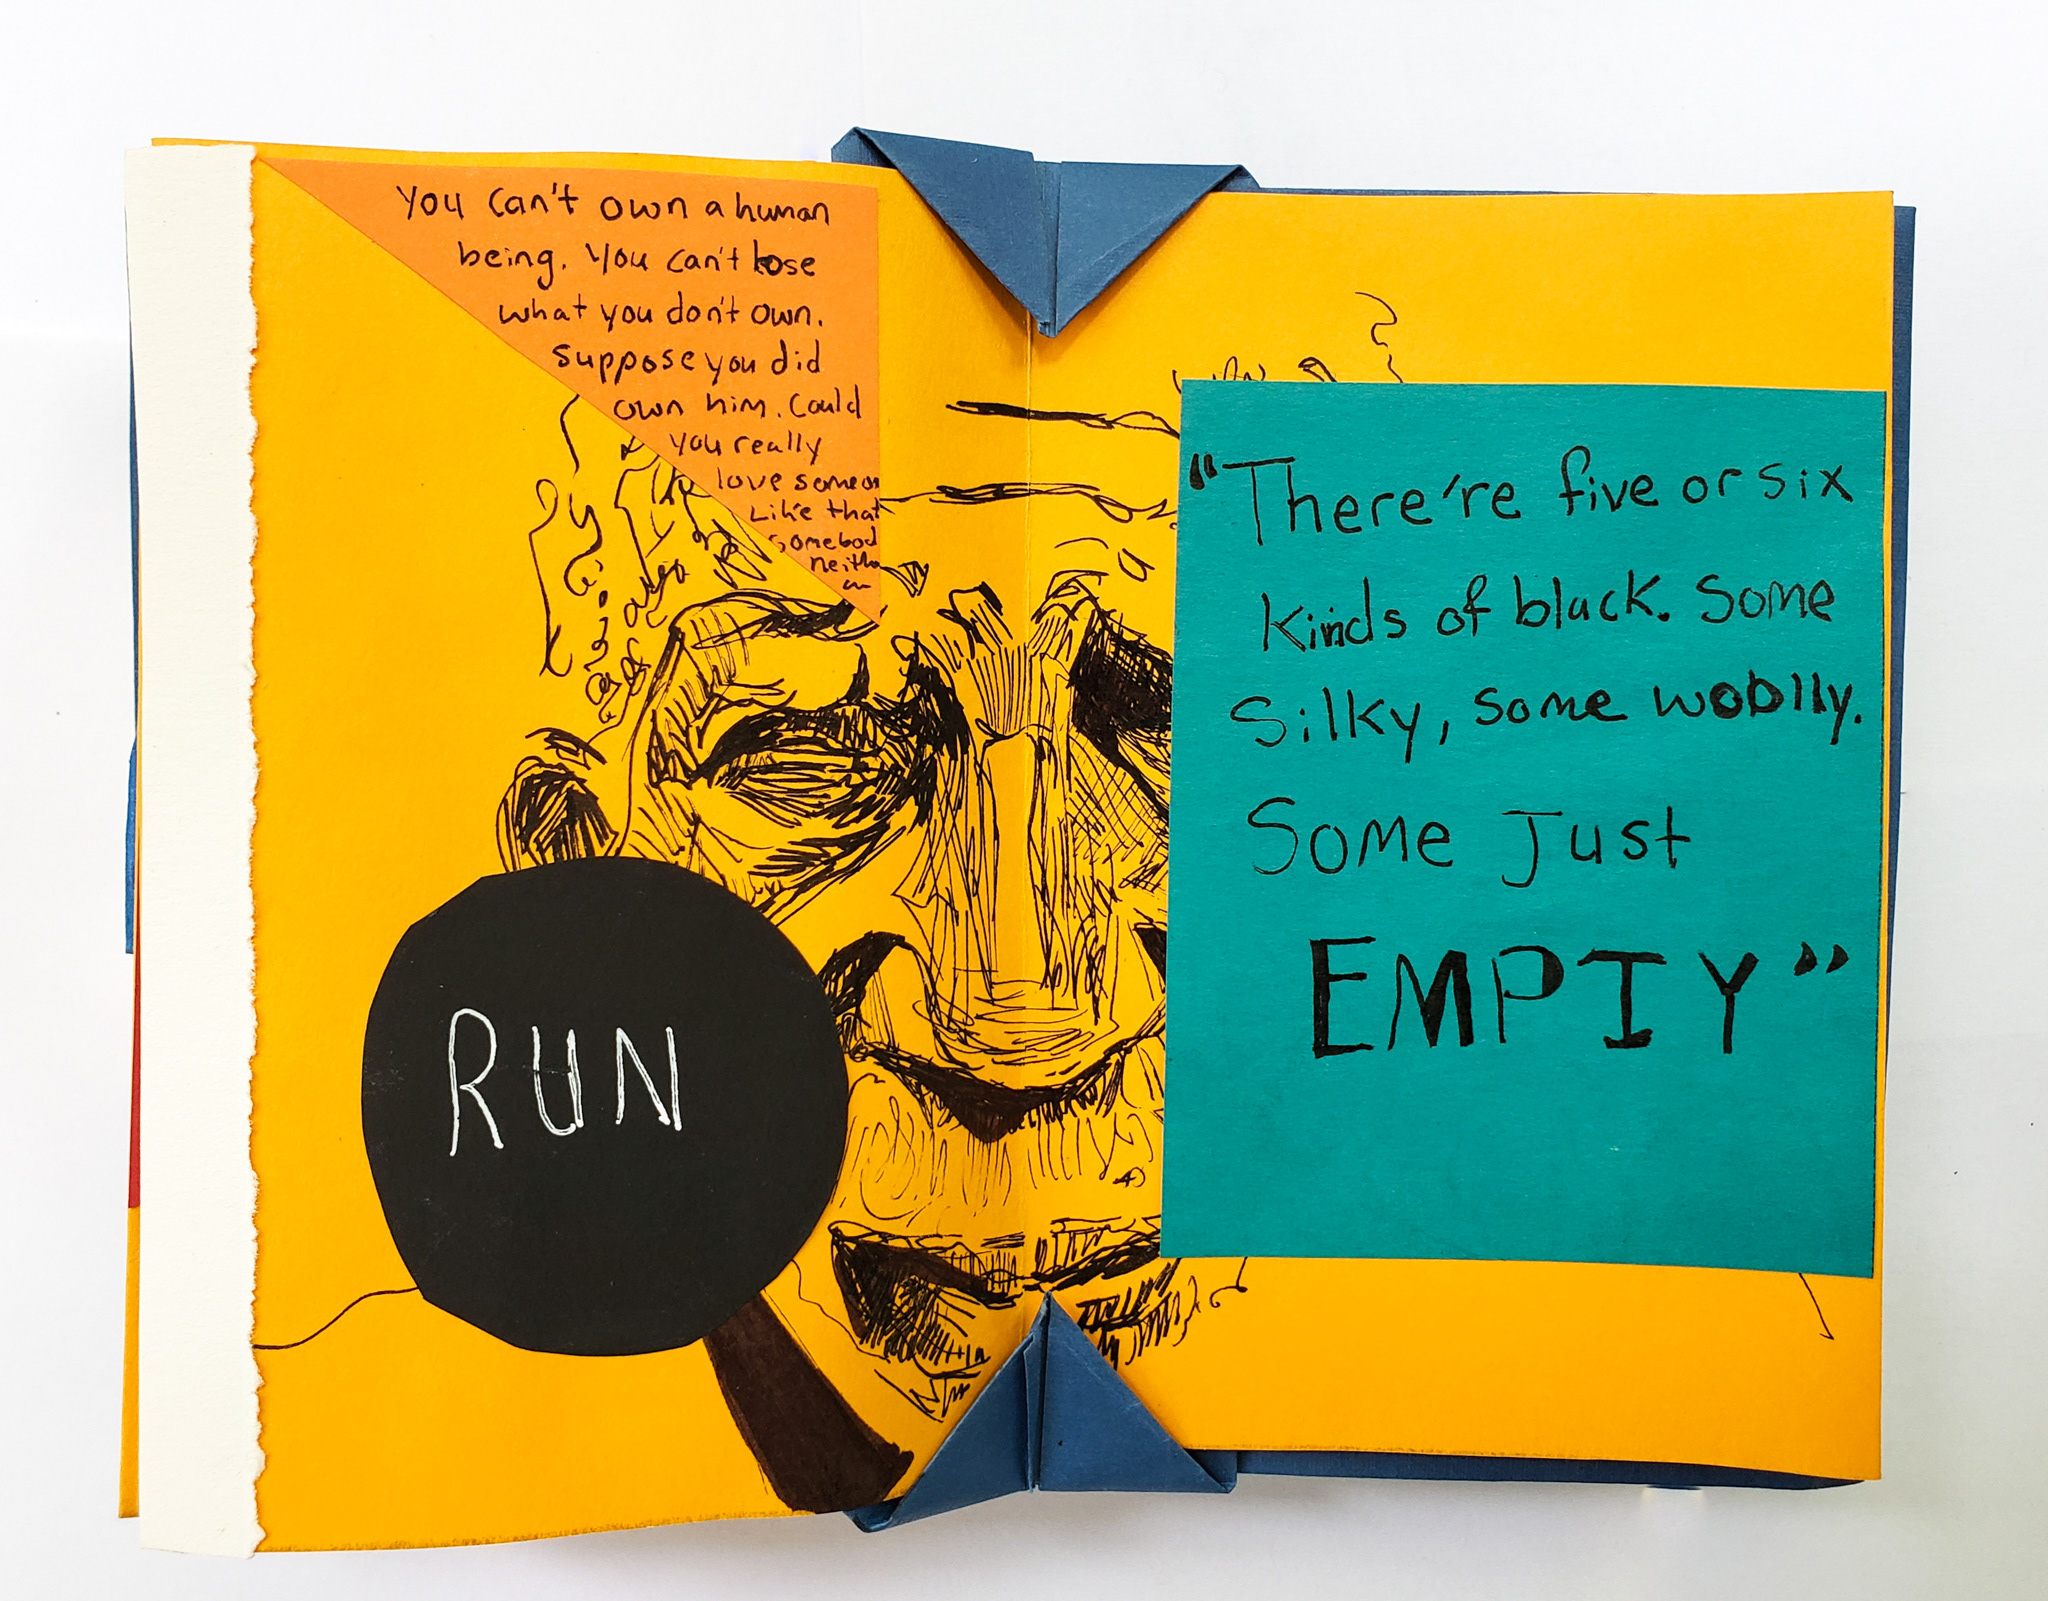 You can't own a human
being. You can't lose
what you don't own.
Suppose you did
own him. Could
you really
love someon
Like that
somebod
neith
"There're five or six
kinds of black. Some
Silky, some woolly.
Some Just
EMPTY"
RUN